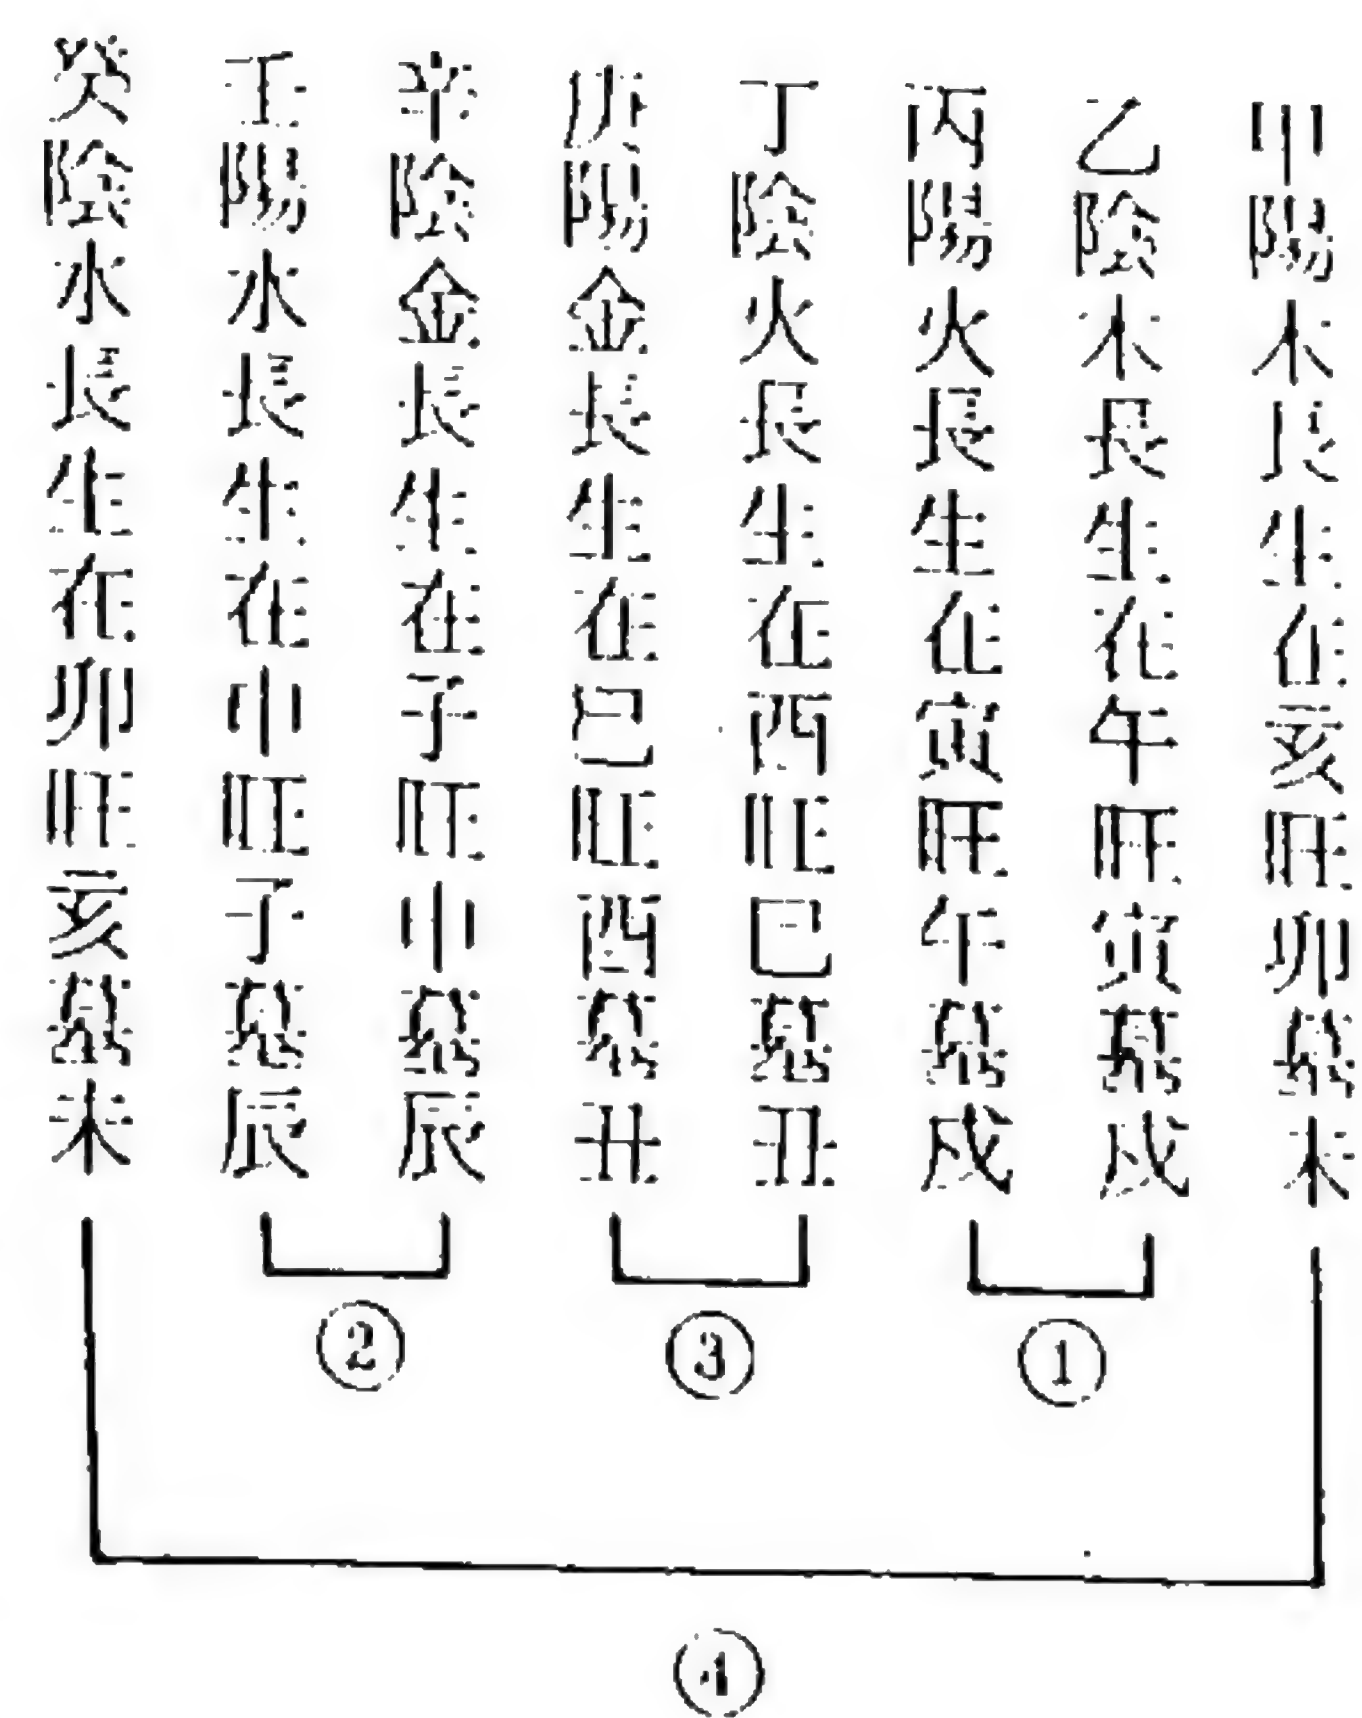 甲陽木長生在亥旺卯墓未
乙陰木長生在午旺寅墓戌
丙陽火長生在寅旺午墓戌
丁陰火長生在酉旺巳墓丑
庚陽金長生在巳旺酉墓丑
辛陰金長生在子旺申墓辰
壬陽水長生在申旺子墓辰
癸陰水長生在卯旺亥墓未
①
③
②
④